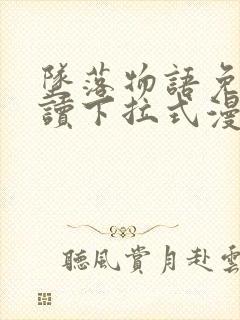 墜落物語免
讀下拉式漫
聽風賞月赴雲